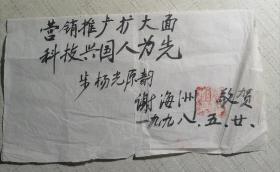 营销推广扩大面
科技兴国人为先
步杨光原韵
谢海洲 敬贺
一九九八.五.廿.